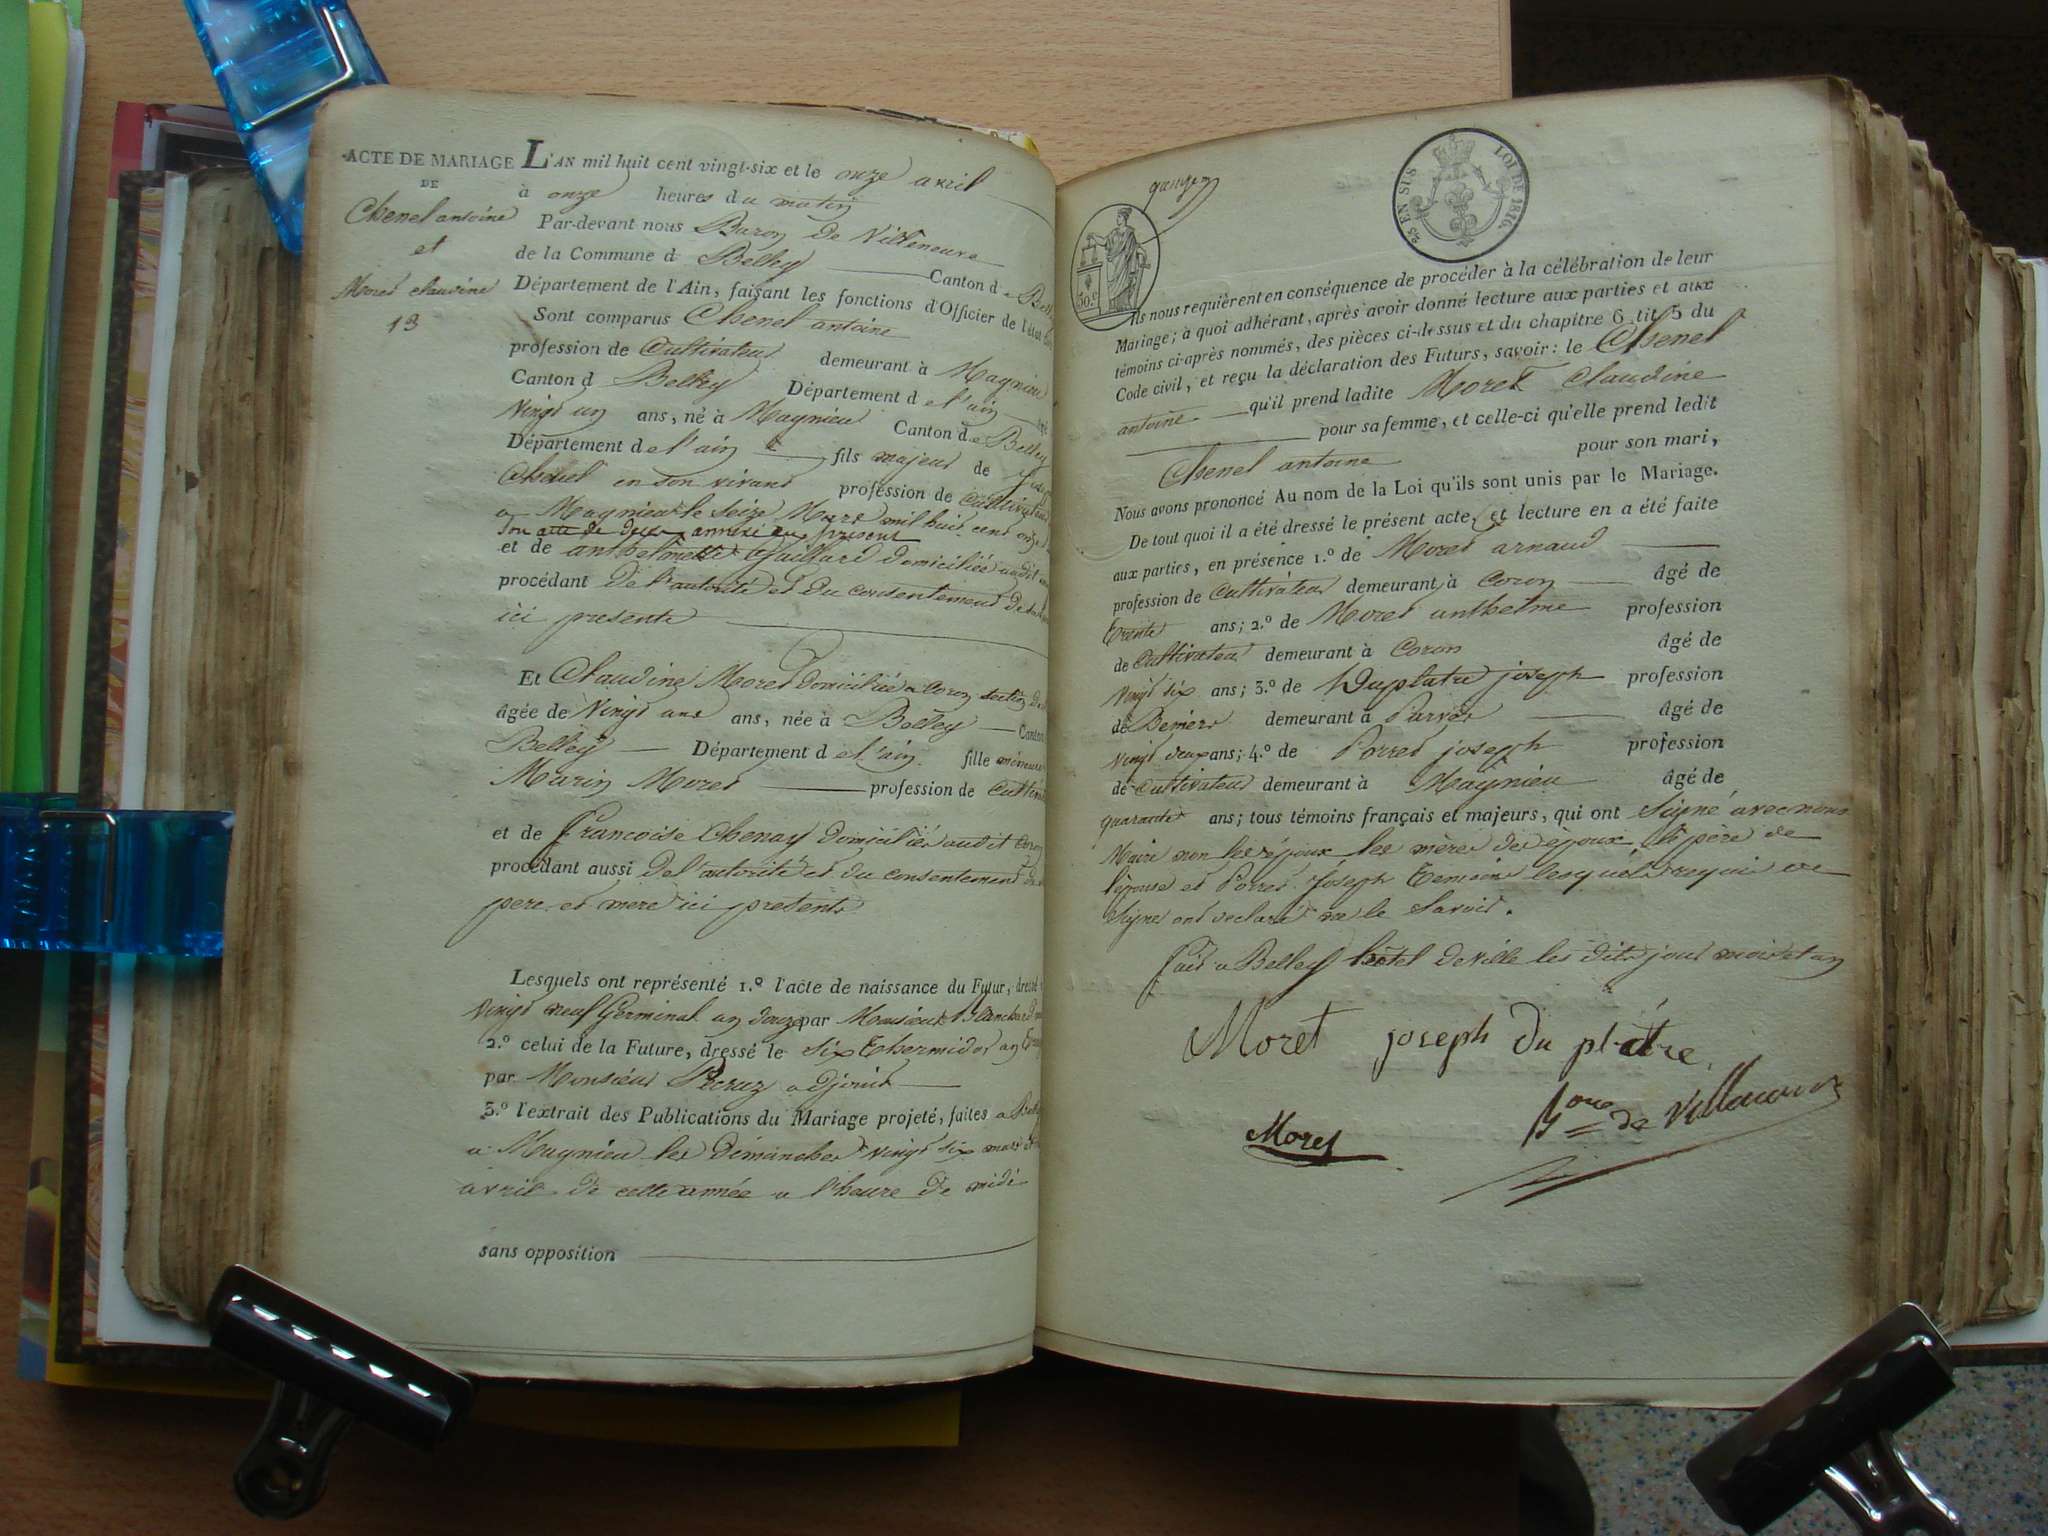 ACTE DE MARIAGE
DE
Chenel antoine
et
Moret claudine
13
L'AN mil huit cent vingt-six et le onze avril
à onze heures du matin
Par-devant nous Baron de Villeneuve
de la Commune d Belley Canton de
Département de l'Ain, faisant les fonctions d'Officier de l'état
Sont comparus Chenel antoine
profession de Cultivateur demeurant à Magnieu
Canton d Belley Département de l'ain
Vingt un ans, né à Magnieu Canton de Belley
Département de l'ain fils majeur de
Chenel en son vivant profession de Cultivateur
a Magnieu le Seize Mars mil huit cent onze
Son acte de deces annexé au present
et de anthelmette Gaillard domiciliée audit
procédant de l'autorité et du consentement de
ici presente
Et Claudine Moret domiciliée a Coron section de
âgée de Vingt ans ans, née à Belley Canton
Belley Département de l'ain fille mineure
Marin Moret profession de
et de Francoise Chenay domiciliés audit Coron
procédant aussi de l'autorité et du consentement de
pere et mere ici presents
Lesquels ont représenté 1.º l'acte de naissance du Futur, dressé
Vingt neuf Germinal an douze par Monsieur
2.º celui de la Future, dressé le Six Thermidor an
par Monsieur adjoint
3.º l'extrait des Publications du Mariage projeté, faites a
a Magnieu les dimanches vingt six mars et
avril de cette année a l'heure de midi
sans opposition
25 EN SUS
LOI DE 1816.
50.c
Ils nous requièrent en conséquence de procéder à la célébration de leur
Mariage; à quoi adhérant, après avoir donné lecture aux parties et aux
témoins ci-après nommés, des pièces ci-dessus et du chapitre 6 tit 5 du
Code civil, et reçu la déclaration des Futurs, savoir: le Chenel
antoine qu'il prend ladite Moret Claudine
pour sa femme, et celle-ci qu'elle prend ledit
Chenel antoine pour son mari,
Nous avons prononcé Au nom de la Loi qu'ils sont unis par le Mariage.
De tout quoi il a été dressé le présent acte, et lecture en a été faite
aux parties, en présence 1.º de Moret arnaud
profession de Cultivateur demeurant à Coron âgé de
trente ans; 2.º de Moret anthelme profession
de Cultivateur demeurant à Coron âgé de
Vingt six ans; 3.º de Duplatre joseph profession
de demeurant à Parves âgé de
Vingt deux ans; 4.º de Porret joseph profession
de Cultivateur demeurant à Magnieu âgé de
quarante ans; tous témoins français et majeurs, qui ont Signé avec nous
Maire non les époux les mères des époux le père de
l'épouse et Porret Joseph temoins lesquels requis de
Signer ont declaré ne le Savoir.
fait a Belley hôtel de ville les dits jour mois et an
Moret joseph du platre
Moret
Bon de Villeneuve